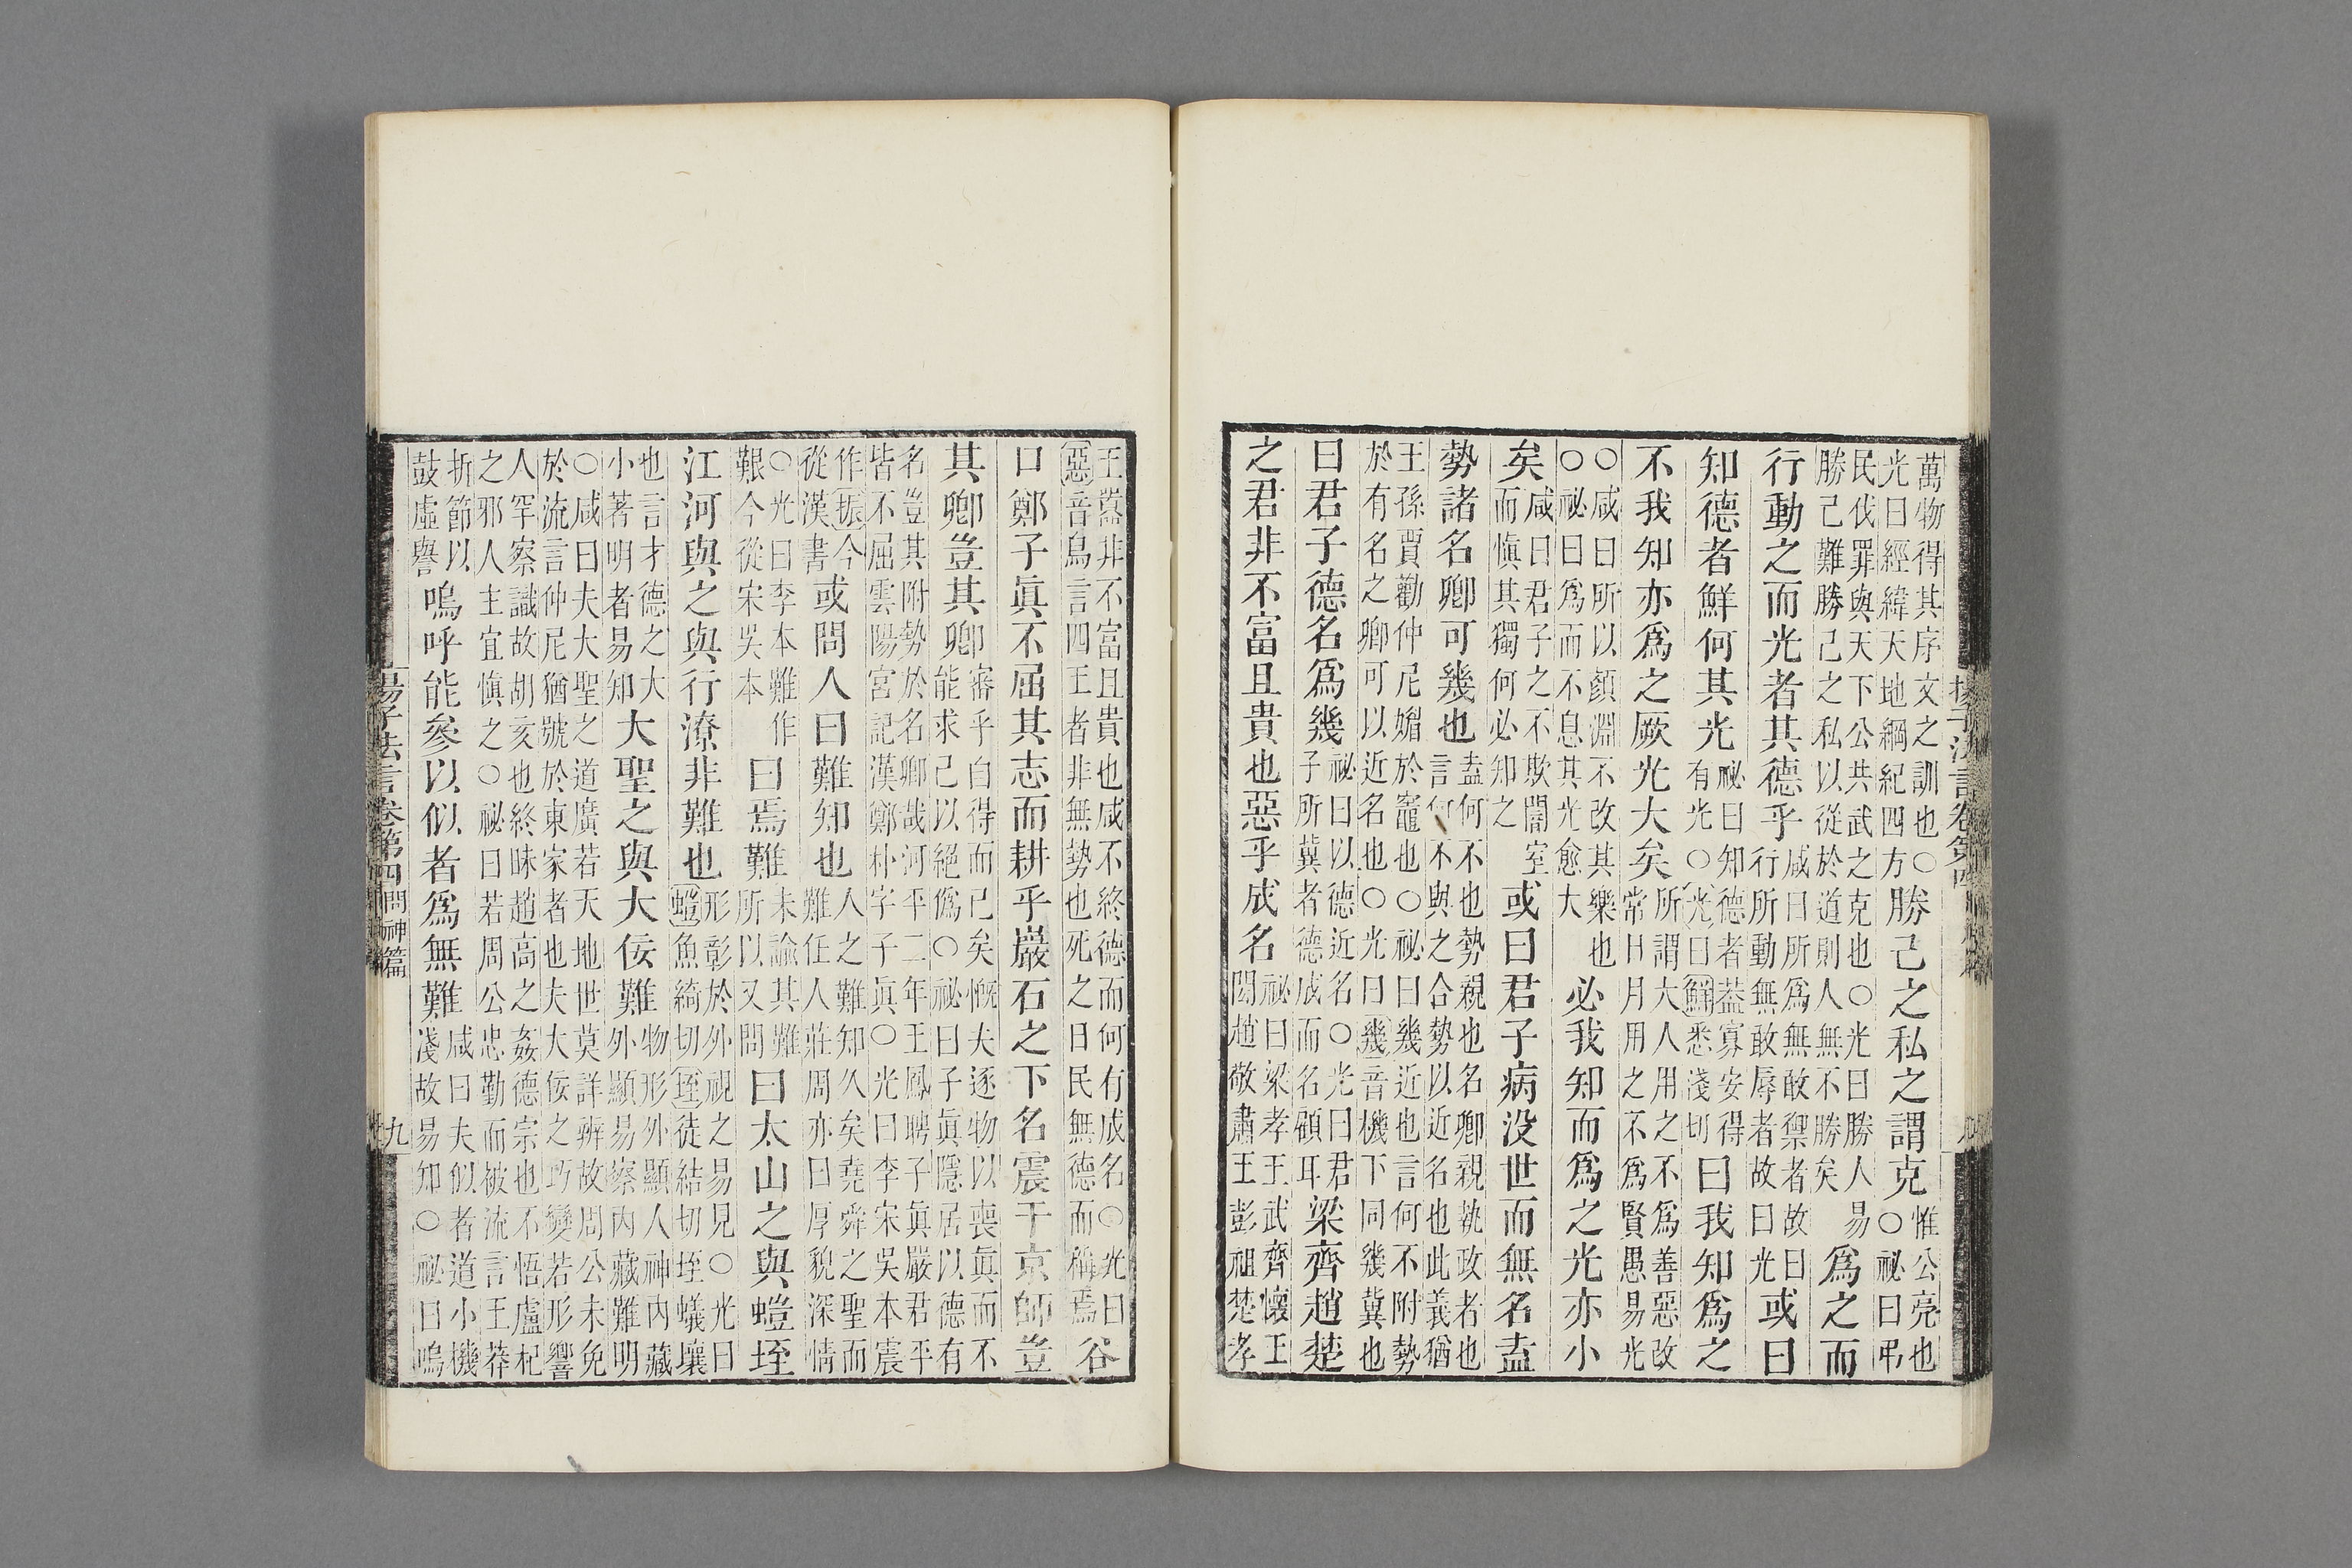 萬物得其序文之訓也○
光曰經緯天地綱紀四方
勝己之私之謂克
惟公亮也
○祕曰弔
民伐罪與天下公共武之克也○光曰勝人易
勝己難勝己之私以從於道則人無不勝矣
爲之而
行動之而光者其德乎
咸曰所爲無敢禦者故曰
行所動無敢辱者故曰光
或曰
知德者鮮何其光
祕曰知德者葢寡安得
有光○光曰鮮悉淺切
曰我知爲之
不我知亦爲之厥光大矣
所謂大人用之不爲善惡改
常日月用之不爲賢愚易光
○咸曰所以顏淵不改其樂也
○祕曰爲而不息其光愈大
必我知而爲之光亦小
矣
咸曰君子之不欺闇室
而愼其獨何必知之
或曰君子病没世而無名盍
勢諸名卿可幾也
盍何不也勢親也名卿親執政者也
言何不與之合勢以近名也此義猶
王孫賈勸仲尼媚於竈也○祕曰幾近也言何不附勢
於有名之卿可以近名也○光曰幾音機下同幾冀也
曰君子德名爲幾
祕曰以德近名○光曰君
子所冀者德成而名顧耳
梁齊趙楚
之君非不富且貴也惡乎成名
祕曰梁孝王武齊懷王
閎趙敬肅王彭祖楚孝
王囂非不富且貴也咸不終德而何有成名○光曰
惡音烏言四王者非無勢也死之日民無德而稱焉
谷
口鄭子眞不屈其志而耕乎巖石之下名震于京師豈
其卿豈其卿
審乎自得而已矣慨夫逐物以喪眞而不
能求己以絕僞○祕曰子眞隱居以德有
名豈其附勢於名卿哉河平二年王鳳聘子眞嚴君平
皆不屈雲陽宮記漢鄭朴字子眞○光曰李宋吳本震
作振今
從漢書
或問人曰難知也
人之難知久矣堯舜之聖而
難任人莊周亦曰厚貌深情
○光曰李本難作
艱今從宋吳本
曰焉難
未諭其難
所以又問
曰太山之與螘垤
江河與之與行潦非難也
形彰於外視之易見○光曰
螘魚綺切垤徒結切垤蟻壤
也言才德之大
小著明者易知
大聖之與大佞難
物形外顯人神內藏
外顯易察內藏難明
○咸曰夫大聖之道廣若天地世莫詳辨故周公未免
於流言仲尼猶號於東家者也夫大佞之巧變若形響
人罕察識故胡亥也終昧趙高之姦德宗也不悟盧杞
之邪人主宜愼之○祕曰若周公忠勤而被流言王莽
折節以
鼓虛譽
嗚呼能參以似者爲無難
咸曰夫似者道小機
淺故易知○祕曰嗚
揚子法言卷第四問神篇
九